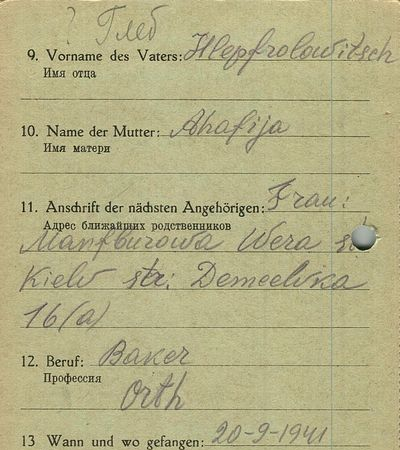 ? Глеб
9. Vorname des Vaters: Hlepfrolowitsch
Имя отца
10. Name der Mutter: Ahafija
Имя матери
11. Anschrift der nächsten Angehörigen: Frau:
Адрес ближайших родственников
Wera
Kiew str: Demeewka
16(a)
12. Beruf: Baker
Профессия
Orth
13 Wann und wo gefangen: 20-9-1941